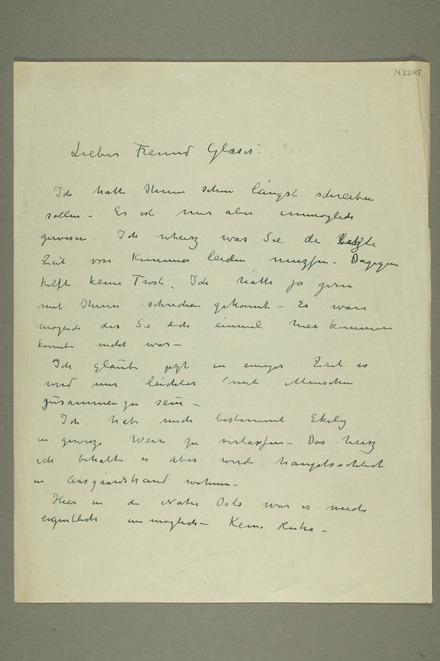 N 2245
Lieber Freund Glaser.
Ich hatte Ihnen schon längst schreiben
sollen – Es ist mir aber unmoglich
gewesen. Ich weisz was Sie die letzte
Zeit von Kummer leiden muszten – Dagegen
hilft keine Trost. Ich hätte so gern
mit Ihnen sprechen gekonnt – Es ware
moglich das Sie doch einmal hier kommen
konnte nicht war –
Ich glaube jetzt in einiger Zeit es
wird mir leichter mit Menschen
zusammen zu sein –
Ich habe mich bestimmt Ekely
in gewisze Weise zu verlaszen – Das heisz
ich behalte es aber werde hauptsachlich
in Aasgaardstrand wohnen –
Hier in der Nahe Oslo war es mich
eigentlich unmoglich – Keine Ruhe –